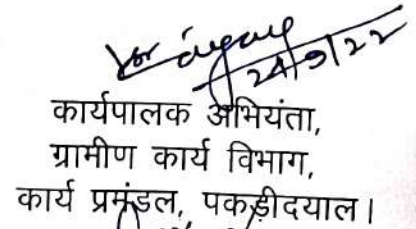 24/9/22
कार्यपालक अभियंता,
ग्रामीण कार्य विभाग,
कार्य प्रमंडल, पकड़ीदयाल।